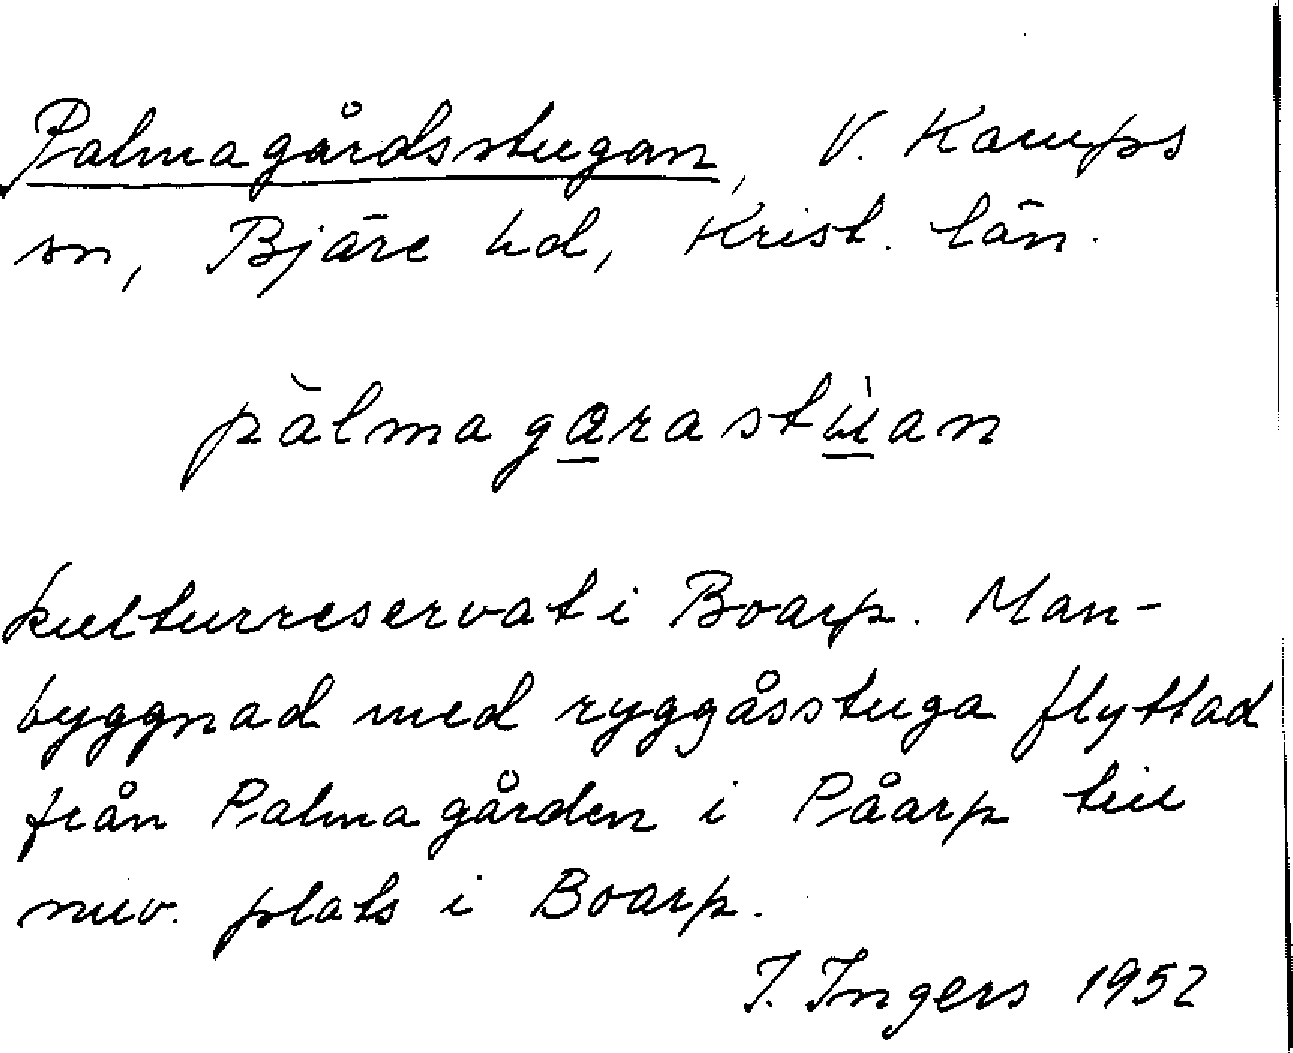 Palmagårdsstugan, V. Karups
sn, Bjäre hd, Krist. län.
pàlmagarastùan
kulturreservat i Boarp. Man-
byggnad med ryggåsstuga flyttad
från Palmagården i Påarp till
nuv. plats i Boarp.
I. Ingers 1952